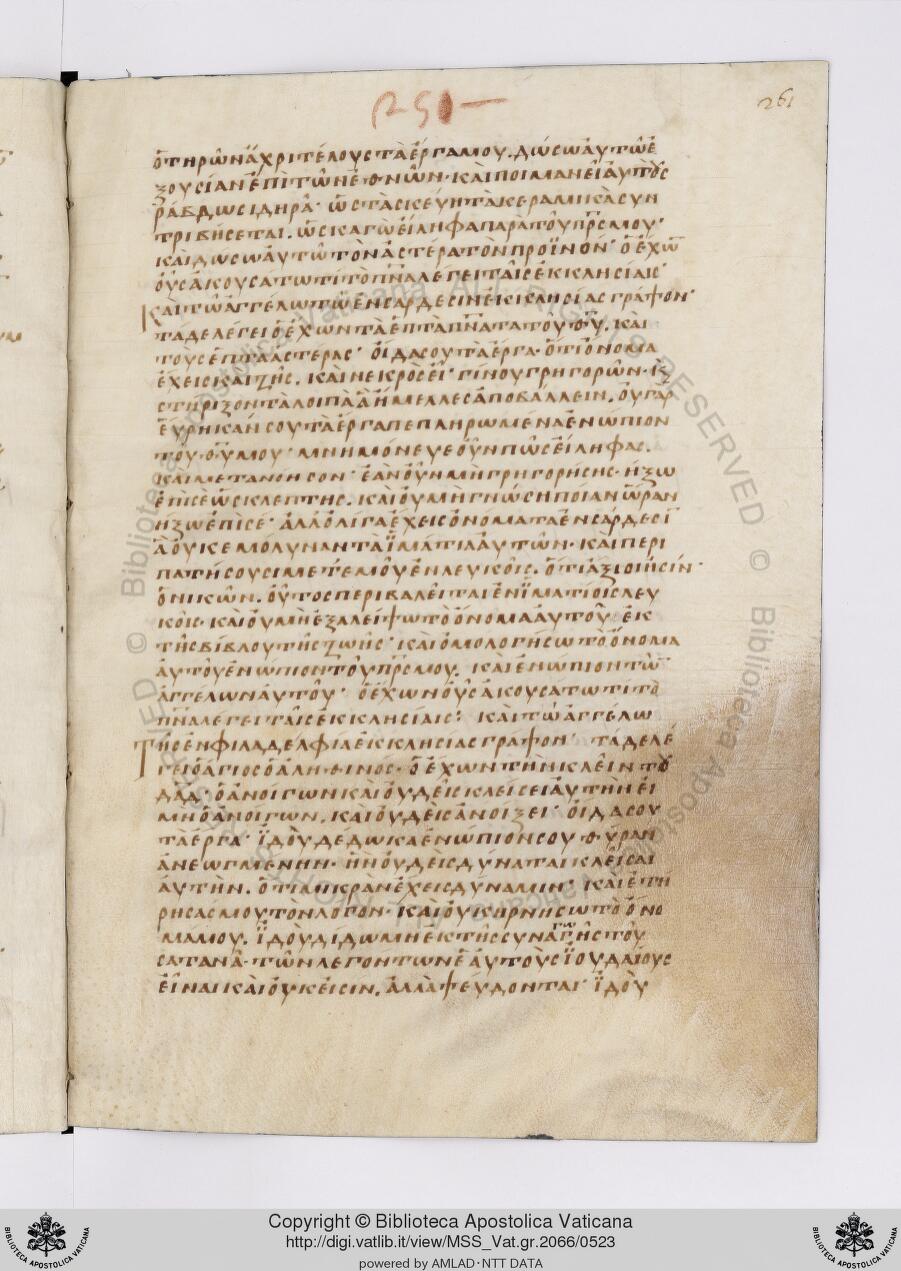 251
261
ὁτηρῶνἄχριτέλουςτὰἔργαμου. δώσωἀυτῶἐ
ξουσίανἐπὶτῶνἐθνῶν· καὶποιμανεῖἀυτοὺς
ῥάβδωσιδηρᾶ· ὡςτὰσκεύητὰκεραμικὰσυν
τριβήσεται. ὡςκαγὼεἴληφαπαρὰτοῦπρσμου·
καὶδώσωἀυτῶτὸνἀστέρατὸνπροϊνόν· ὁἔχων
οὖςἀκουσάτωτίτὸπναλέγειταῖςἐκκλησίαις·
Καὶτῶἀγγέλωτῶἐνσάρδεσινἐκκλησίαςγράψον·
τάδελέγειὁἔχωντὰἑπτὰπνατατοῦθυ. καὶ
τοὺςἑπτὰἀστέρας· οἶδάσουτὰἔργα· ὅτιὄνομα
ἔχειςκαὶζῆς. καὶνεκρὸςεἶ· γίνουγρηγορῶν·
στήριξοντὰλοιπὰἃἤμελλεςἀποβάλλειν. οὐγὰρ
εὕρηκάσουτὰἔργαπεπληρωμέναἐνώπιον
τοῦθυμου· μνημόνευεοὖνπῶςεἴληφας.
καὶμετανόησον· ἐὰνοὖνμὴγρηγορήσης· ἥξω
ἐπὶσὲὡςκλέπτης. καὶοὐμὴγνώσηποίανὥραν
ἥξωἐπὶσέ· ἀλλὀλίγαἔχειςὀνόματαἐνσάρδεσιν
ἃοὐκἐμόλυναντὰϊμάτιαἀυτῶν· καὶπερι
πατήσουσιμετἐμοῦἐνλευκοῖς. ὅτιἄξιοίεἰσιν·
ὁνικῶν. οὗτοςπεριβαλεῖταιἐνϊματίοιςλευ
κοῖς· καὶοὐμὴἐξαλείψωτὸὄνομαἀυτοῦἐκ
τῆςβίβλουτῆςζωῆς· καὶὁμολογήσωτὸὄνομα
ἀυτοῦἐνώπιοντοῦπρσμου. καὶἐνώπιοντῶν
ἀγγέλωνἀυτοῦ· ὁἔχωνοὖςἀκουσάτωτίτὸ
πναλέγειταῖςἐκκλησίαις: καὶτῶἀγγέλω
Τῆςἐνφιλαδελφίαἐκκλησίαςγράψον· τάδελέ
γειὁἅγιοςὁἀληθινός· ὁἔχωντὴνκλεῖντοῦ
δαδ· ὁἀνοίγωνκαὶοὐδεὶςκλείσειἀυτὴνεἰ
μὴὁἀνοίγων. καὶοὐδεὶςἀνοίξει· οἶδάσου
τὰἔργα· ϊδοὺδέδωκαἐνώπιόνσουθύραν
ἀνεωγμένην· ἣνοὐδεὶςδύναταικλεῖσαι
ἀυτήν. ὅτιμικρὰνἔχειςδύναμιν· καὶἐτή
ρησάςμουτὸνλόγον· καὶοὐκἠρνήσωτὸὄνο
μάμου. ϊδοὺδίδωμηἐκτῆςσυναγωγῆςτοῦ
σατανᾶ· τῶνλεγόντωνἑἀυτοὺςϊουδαίους
εἶναικαὶοὐκεἰσίν. ἀλλὰψεύδονται· ϊδοὺ
Copyright © Biblioteca Apostolica Vaticana
http://digi.vatlib.it/view/MSS_Vat.gr.2066/0523
powered by AMLAD·NTT DATA